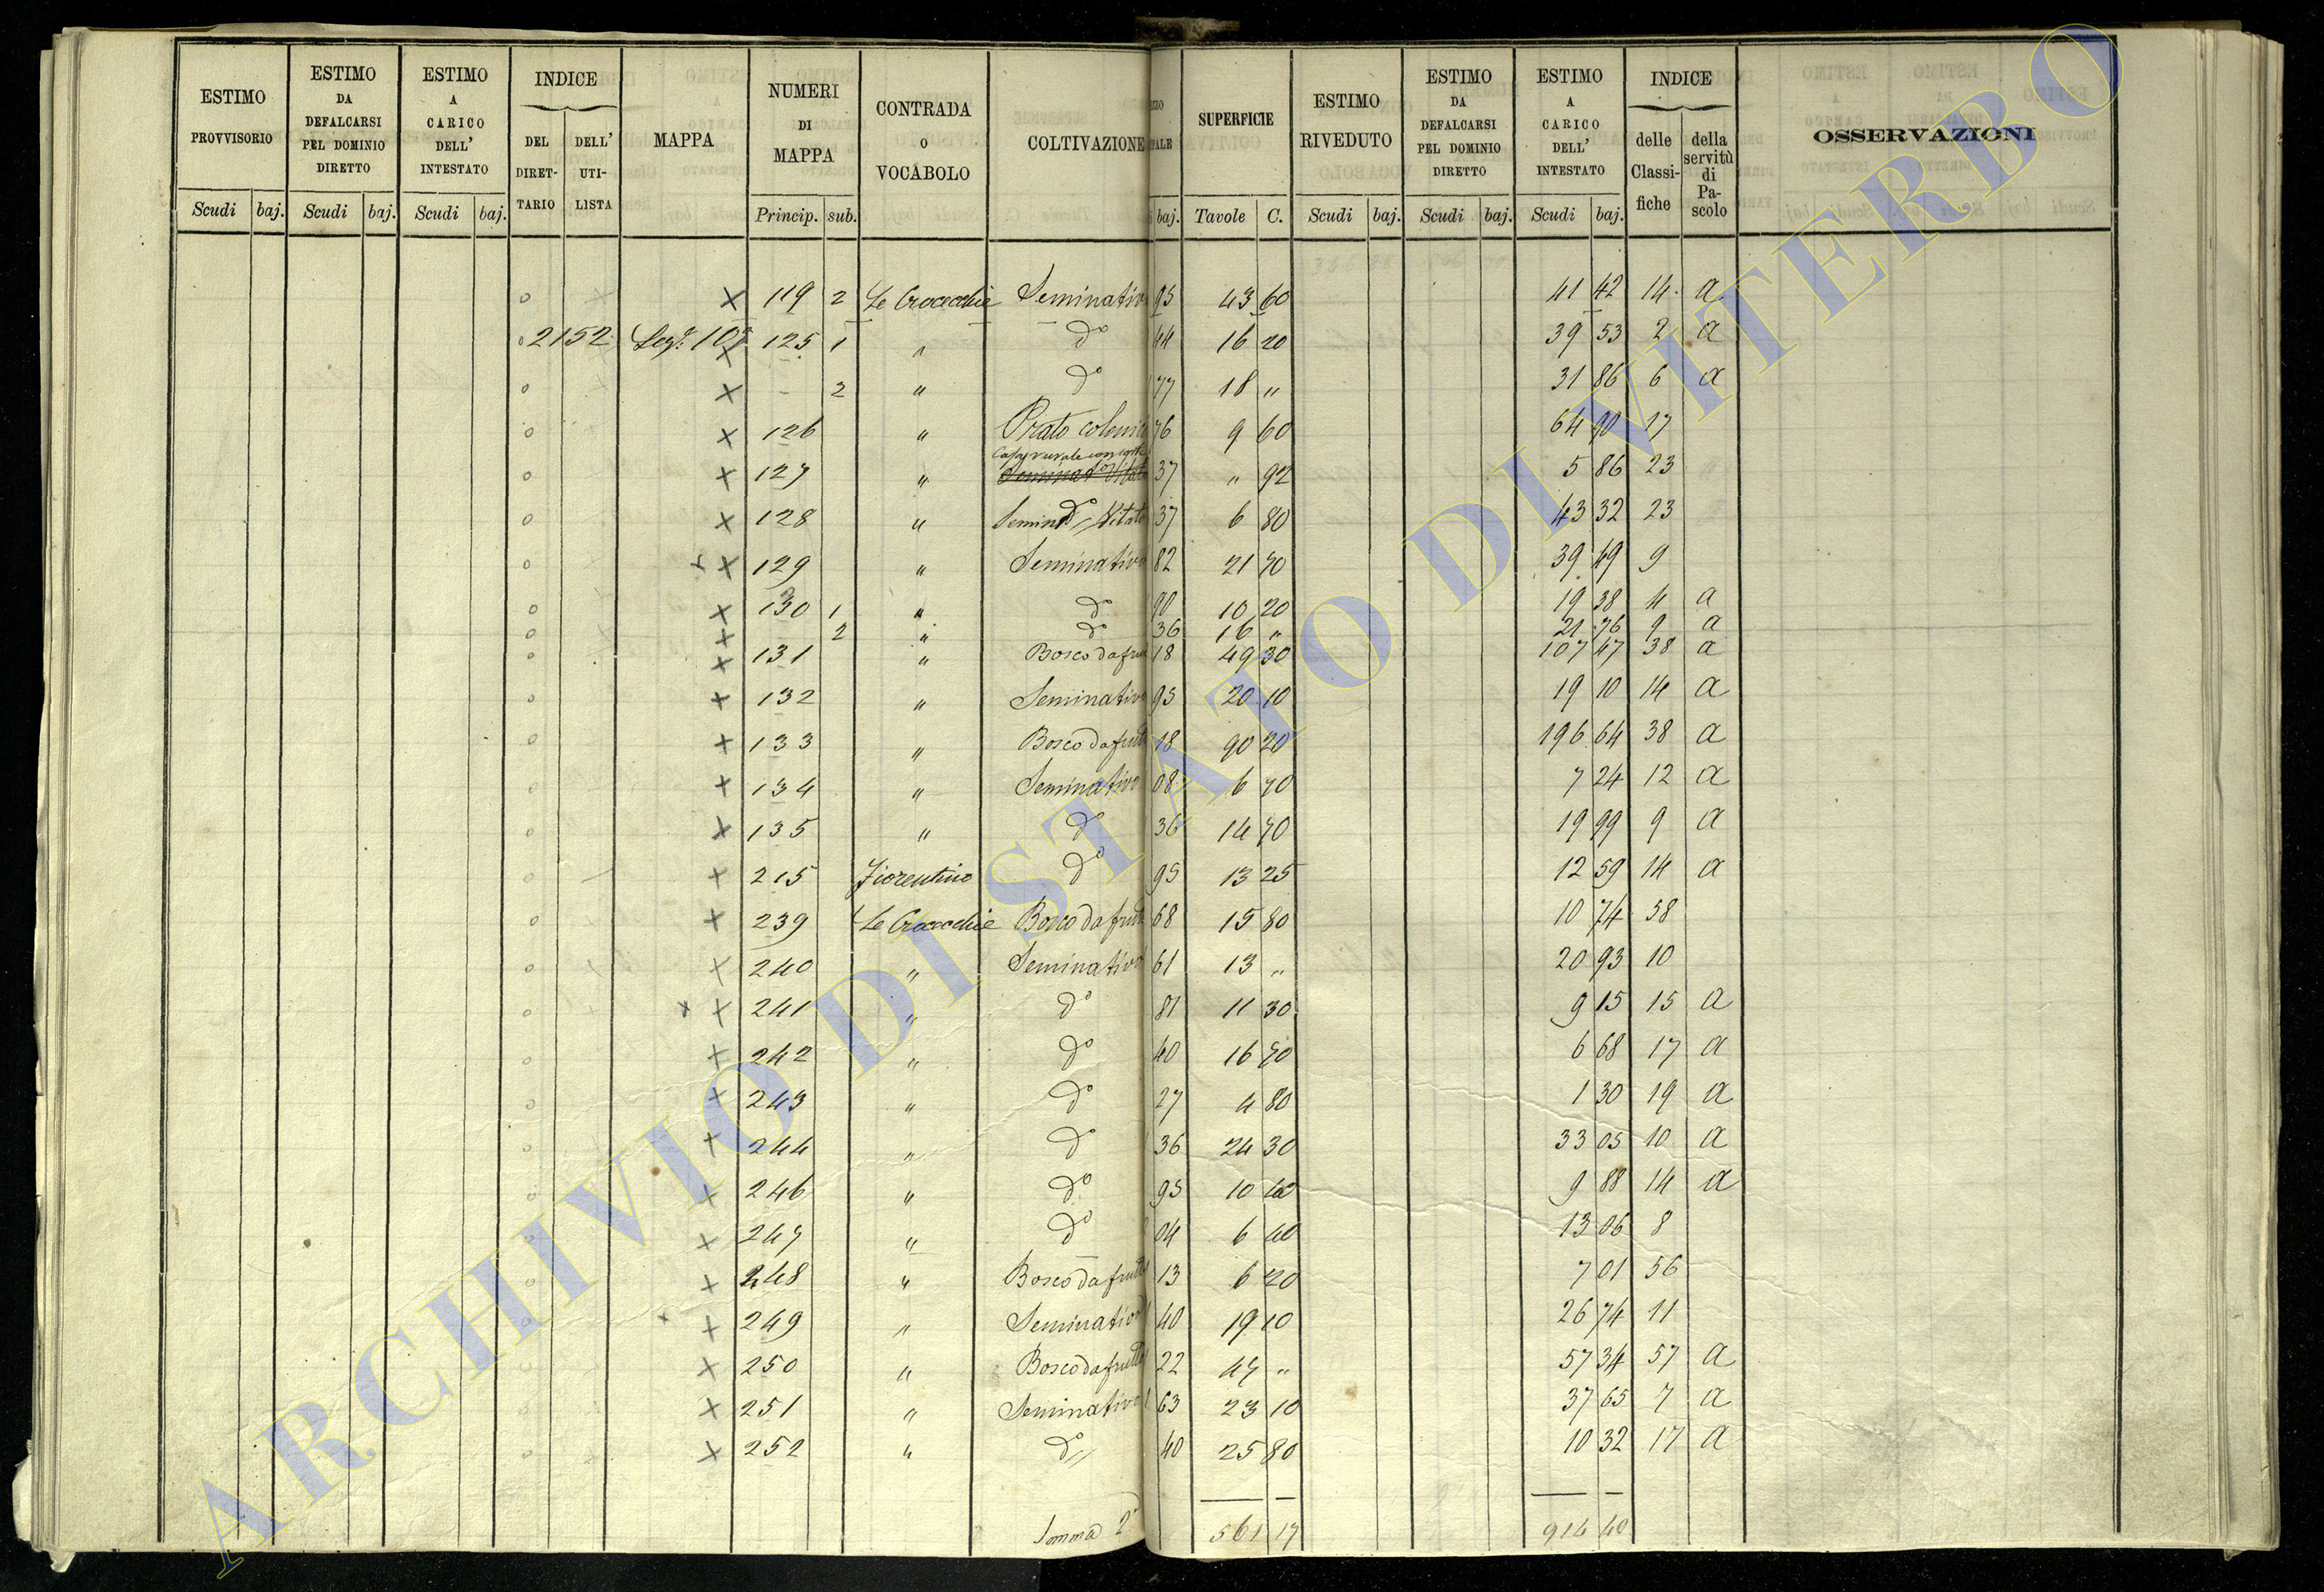 ESTIMO PROVVISORIO | ESTIMO DA DEFALCARSI PEL DOMINIO DIRETTO | ESTIMO A CARICO DELL' INTESTATO | INDICE DEL DIRETTARIO | DELL' UTILISTA | MAPPA | NUMERI DI MAPPA | CONTRADA O VOCABOLO | COLTIVAZIONE | SUPERFICIE | ESTIMO RIVEDUTO | ESTIMO DA DEFALCARSI PEL DOMINIO DIRETTO | ESTIMO A CARICO DELL' INTESTATO | INDICE delle Classifiche | della servitù di Pascolo | OSSERVAZIONI
Scudi baj. Scudi baj. Scudi baj. Princip. sub. baj. Tavole C. Scudi baj. Scudi baj. Scudi baj.
o × 119 2 Le Crocecchie Seminativo 95 43 60 41 42 14 a
o 2152 Sez. 10 × 125 1 " do 44 16 20 39 53 2 a
o × - 2 " do 77 18 " 31 86 6 a
o × 126 " Prato 76 9 60 64 90 17
o × 127 " Casa rurale con corte 37 " 92 5 86 23
o × 128 " Semino Vitato 37 6 80 43 32 23
o × × 129 " Seminativo 82 21 70 39 49 9
o × 130 1 " do 90 10 20 19 38 4 a
o × 2 " do 36 16 " 21 76 9 a
o × 131 " Bosco da frut 18 49 30 107 47 38 a
o × 132 " Seminativo 95 20 10 19 10 14 a
o × 133 " Bosco da frut 18 90 20 196 64 38 a
o × 134 " Seminativo 08 6 70 7 24 12 a
o × 135 " do 36 14 70 19 99 9 a
o × 215 Fiorentino do 95 13 25 12 59 14 a
o × 239 Le Crocecchie Bosco da frut 68 15 80 10 74 38
o × 240 " Seminativo 61 13 " 20 93 10
o × × 241 " do 81 11 30 9 15 15 a
o × 242 " do 40 16 70 6 68 17 a
o × 243 " do 27 4 80 1 30 19 a
o × 244 " do 36 24 30 33 05 10 a
o × 246 " do 95 10 40 9 88 14 a
o × 247 " do 04 6 40 13 06 8
o × 248 " Bosco da frutto 13 6 20 7 01 56
o × × 249 " Seminativo 40 19 10 26 74 11
o × 250 " Bosco da frutto 22 47 " 57 34 57 a
o × 251 " Seminativo 63 23 10 37 65 7 a
o × 252 " do 40 25 80 10 32 17 a
Somma 561 17 914 40
ARCHIVIO DI STATO DI VITERBO